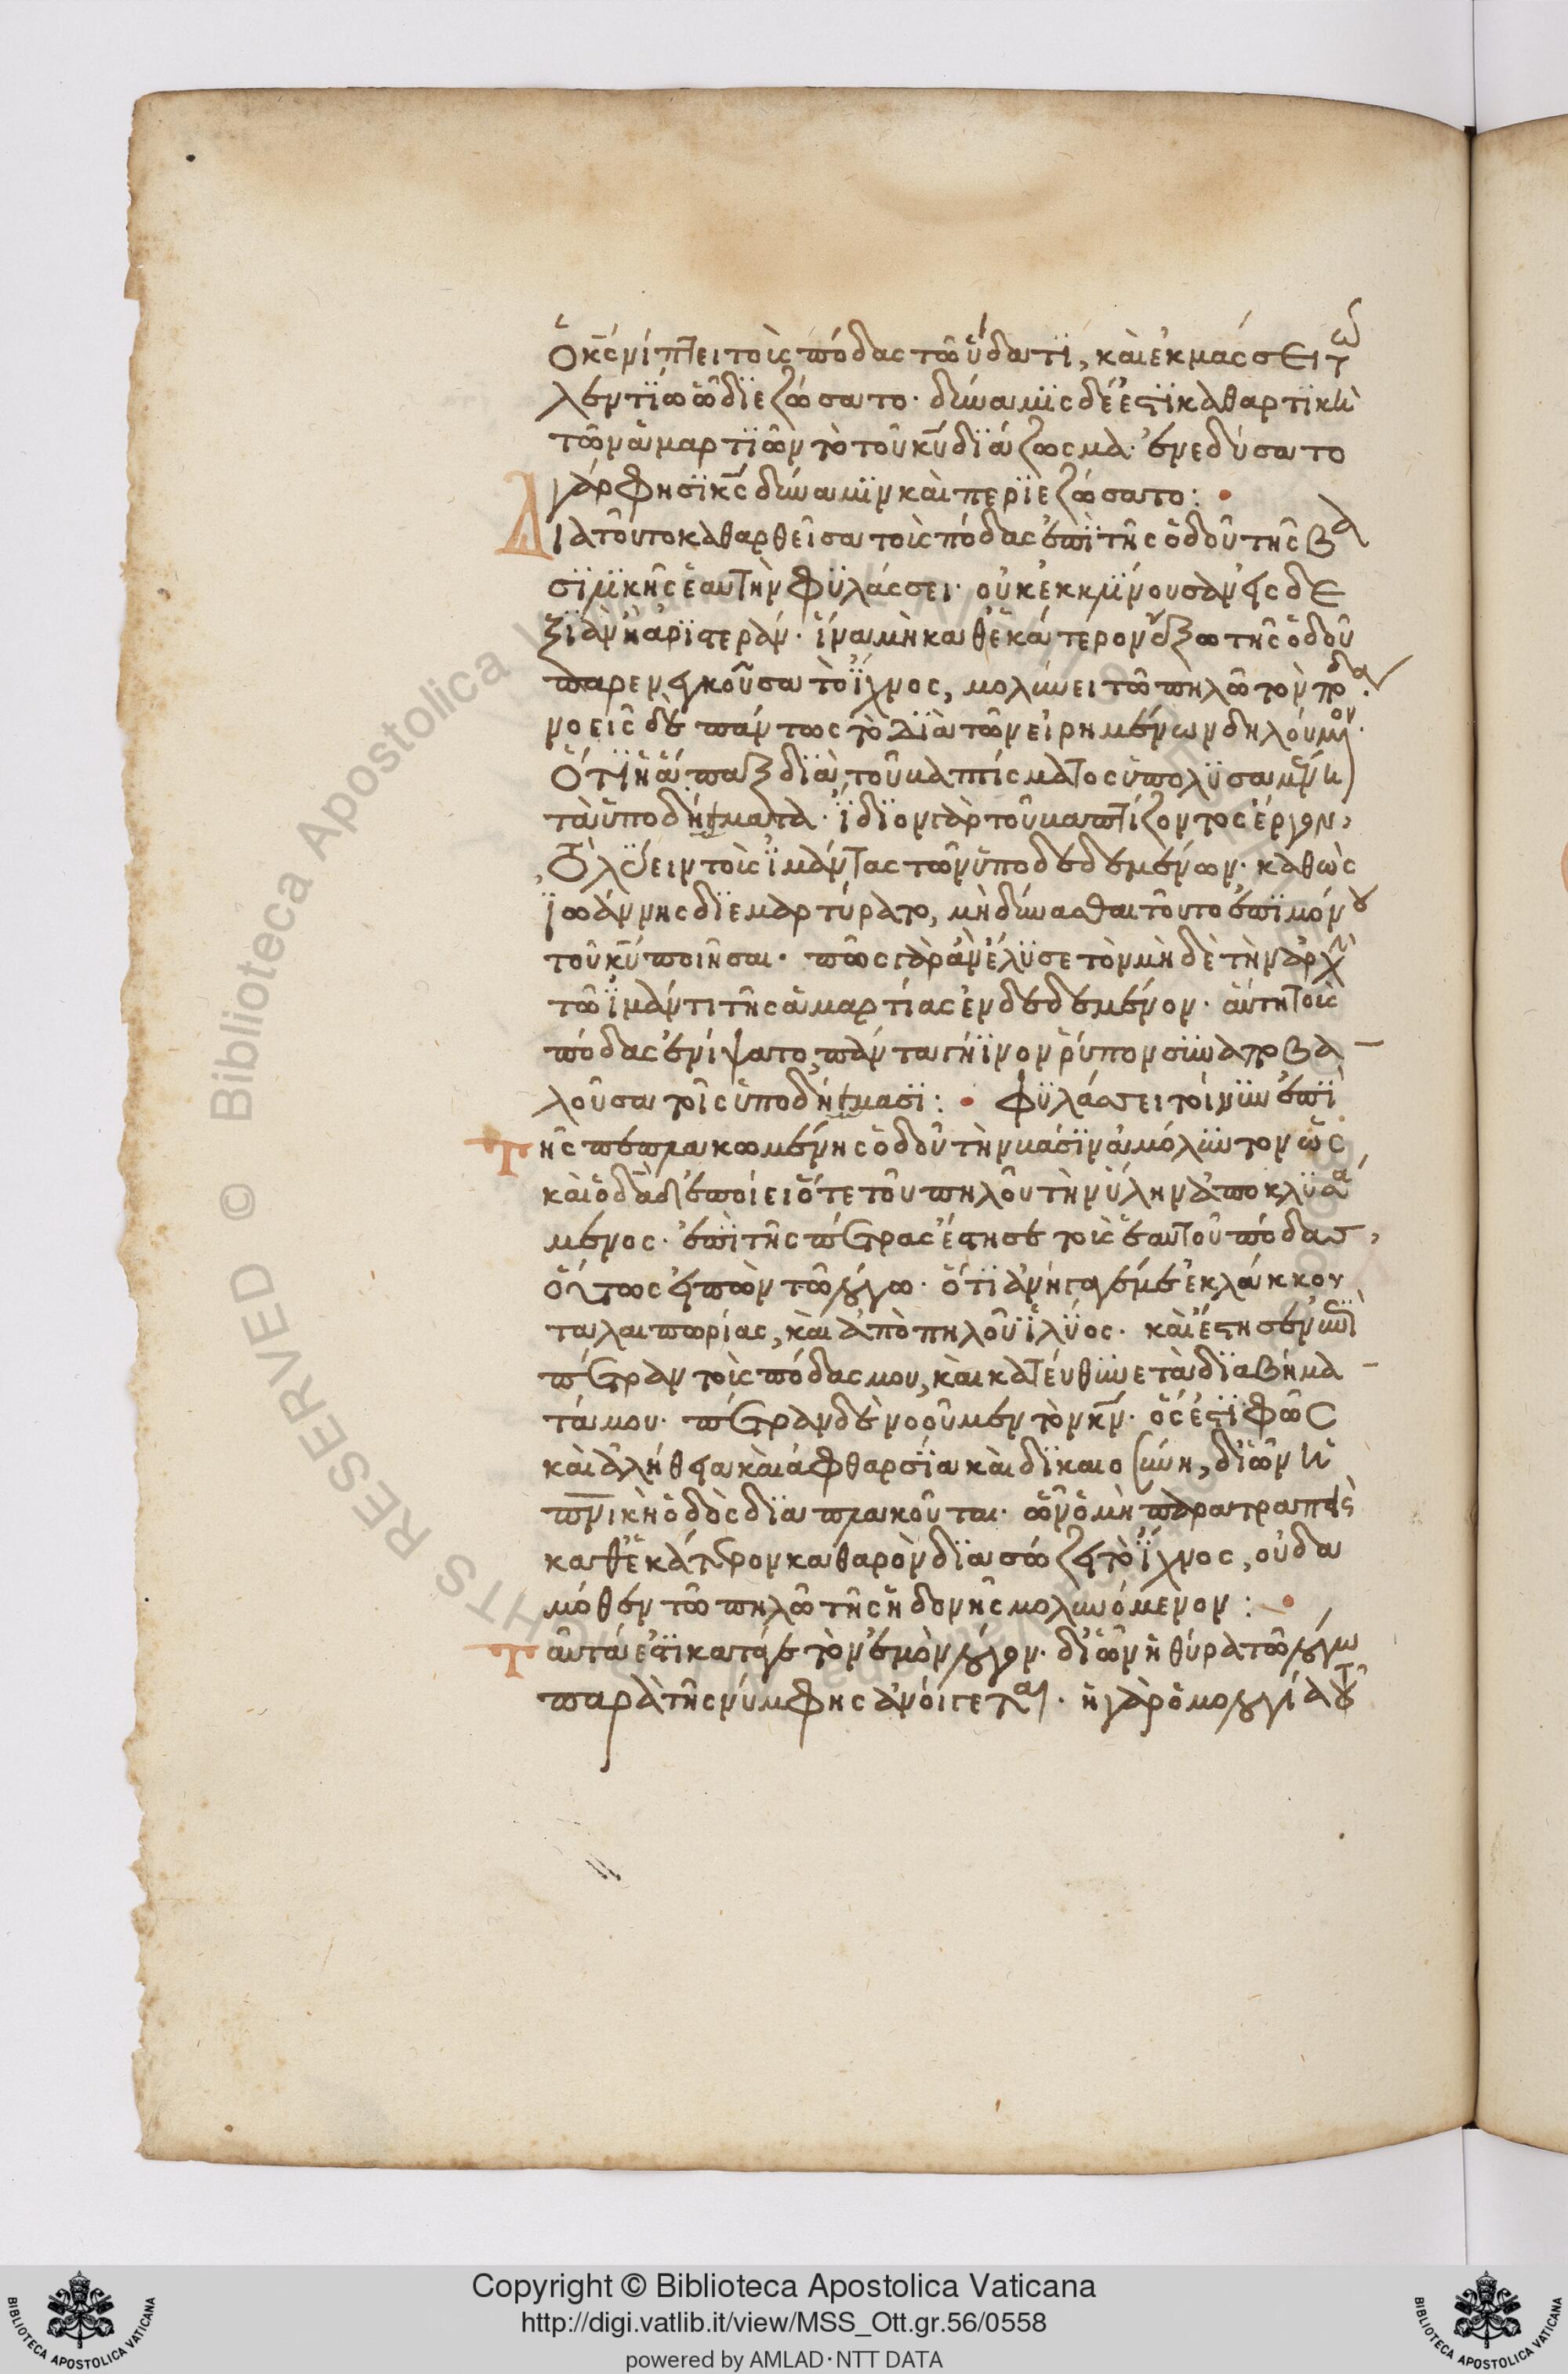 ὁ κ̅ς νίπτει τοὺς πόδας τῶ ὕδατϊ, καὶ ἐκμάσσει τῶ
λεντίω ὧ διεζώσατο· δύναμϊς δέ ἐστϊ καθαρτϊκὴ
τῶν ἁμαρτϊῶν τὸ τοῦ κ̅υ διάζωσμα· ἐνεδύσατο
γάρ φησϊ κ̅ς δύναμϊν καὶ περϊεζώσατο:
Διατοῦτο καθαρθεῖσα τοὺς πόδας ἐπὶ τῆς ὁδοῦ τῆς βα
σϊλϊκῆς ἑαυτὴν φϋλάσσει· οὐκ ἐκκλϊνουσαν εἰς δε
ξϊὰν ἢ ἀρϊστεράν· ἵνα μὴ καθ' ἑκάτερον ἔξω τῆς ὁδοῦ
παρενεγκοῦσα τὸ ἴχνος, μολύνει τῶ πηλῶ τὸν πόδα·
νοεῖς δὲ πάντως τὸ διὰ τῶν εἰρημένων δηλούμενον·
ὅτϊ ἡ ἅπαξ διὰ τοῦ βαπτίσματος ὑπολϋσαμένη
τὰ ὑποδήματα· ἴδϊον γὰρ τοῦ βαπτίζοντος ἔργον,
τὸ λϋειν τοὺς ἱμάντας τῶν ὑποδεδεμένων· καθὼς
ϊωάννης διεμαρτύρατο, μὴ δύνασθαι τοῦτο ἐπὶ μόνου
τοῦ κ̅υ ποιῆσαι· πῶς γὰρ ἂν ἔλϋσε τὸν μὴ δὲ τὴν ἀρχὴν
τῶ ἱμάντι τῆς ἁμαρτίας ἐνδεδεμένον· αὕτη τοὺς
πόδας ἐνίψατο, πάντα γήϊνον ῥύπον συναποβα
λοῦσα τοῖς ὑποδήμασϊ: φϋλάσσει τοίνϋν ἐπὶ
τῆς πεπλακωμένης ὁδοῦ τὴν βάσϊν ἀμόλϋντον ὡς
καὶ ὁ δα̅δ ἐποίει ὅτε τοῦ πηλοῦ τὴν ὕλην ἀποκλϋσά
μενος· ἐπὶ τῆς πέτρας ἔστησε τοὺς ἑαυτοῦ πόδας,
οὕτως εἰπὼν τῶ λόγω· ὅτϊ ἀνήγαγέμε ἐκ λάκκου
ταλαιπωρίας, καὶ ἀπὸ πηλοῦ ἰλϋος· καὶ ἔστησεν ἐπὶ
πέτραν τοὺς πόδας μου, καὶ κατεύθϋνε τὰ διαβήμα
τά μου· πέτραν δὲ νοοῦμεν τὸν κ̅ν· ὅς ἐστϊ φῶς
καὶ ἀλήθεια καὶ ἀφθαρσϊα καὶ δϊκαιοσύνη, δι' ὧν ἡ
π̅νικὴ ὁδὸς διαπλακοῦται· ὧν ὁ μὴ παρατραπεὶς
καθ' ἑκάτερον καθαρὸν διασώζει τὸ ἴχνος, οὐδα
μόθεν τῶ πηλῶ τῆς ἡδονῆς μολυνόμενον:
Ταῦτά ἐστϊ κατά γε τὸν ἐμὸν λόγον· δι' ὧν ἡ θύρα τῶ λόγω
παρὰ τῆς νύμφης ἀνοίγεται· ἡ γὰρ ὁμολογία τοῦ
Copyright © Biblioteca Apostolica Vaticana
http://digi.vatlib.it/view/MSS_Ott.gr.56/0558
powered by AMLAD·NTT DATA